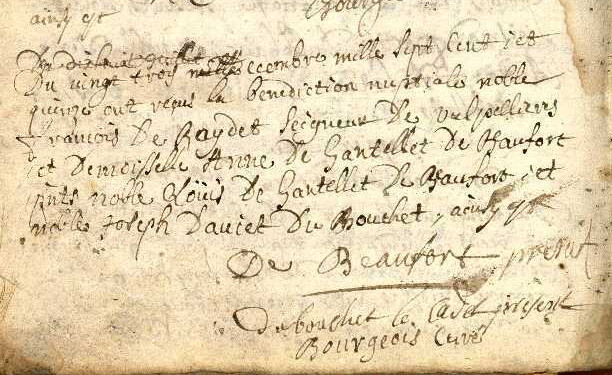 ainsy est
Du vingt trois decembre mille sept cent et
quinze ont reçus la benediction nuptiale noble
francois De Raydet seigneur De vulpelliers
et Demoisselle Anne De Gantellet De Baufort
pnts noble Loüis De Gantellet De Baufort et
noble Joseph Daviet Du Bouchet, ainsy est
De Beaufort present
du bouchet le cadet present
Bourgeois Curé